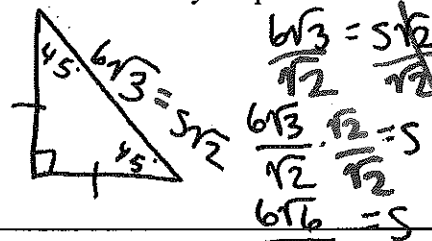 45°
6√3 = s√2
45°
6√3/√2 = s√2/√2
6√3/√2 · √2/√2 = s
6√6 = s